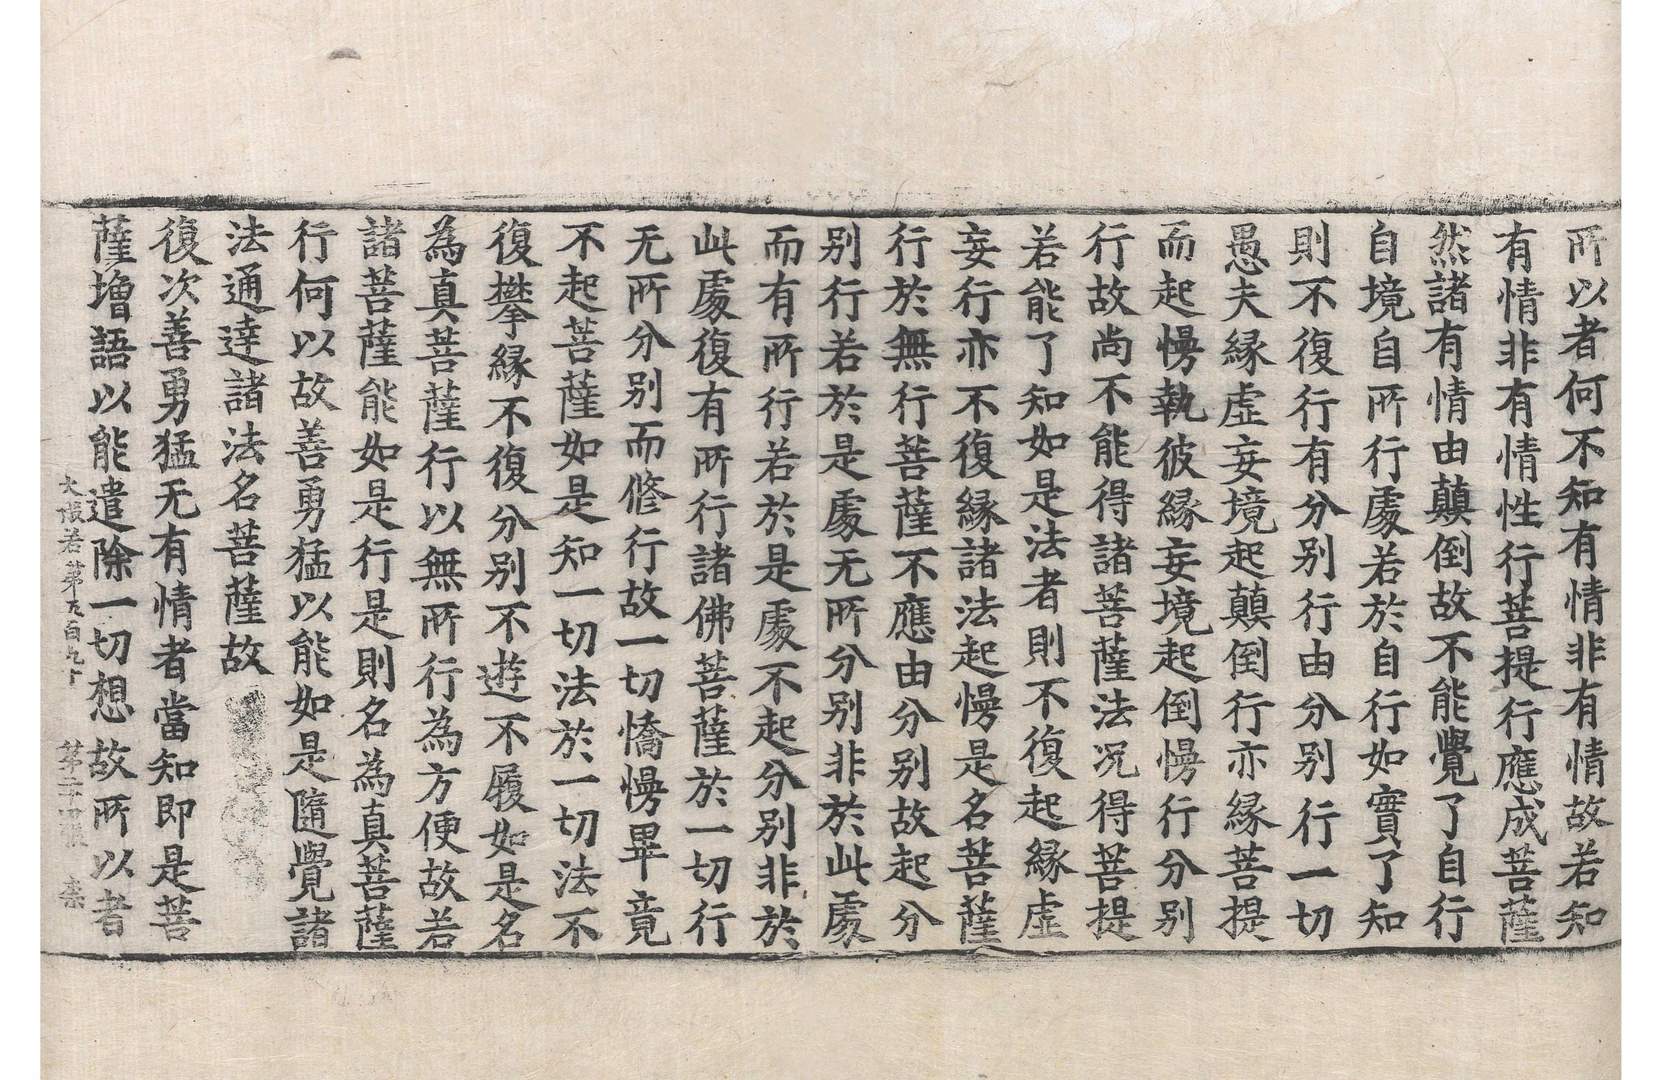 所以者何不知有情非有情故若知
有情非有情性行菩提行應成菩薩
然諸有情由顛倒故不能覺了自行
自境自所行處若於自行如實了知
則不復行有分别行由分别行一切
愚夫緣虛妄境起顛倒行亦緣菩提
而起慢執彼緣妄境起倒慢行分别
行故尚不能得諸菩薩法况得菩提
若能了知如是法者則不復起緣虛
妄行亦不復緣諸法起慢是名菩薩
行於無行菩薩不應由分别故起分
别行若於是處无所分别非於此處
而有所行若於是處不起分别非於
此處復有所行諸佛菩薩於一切行
无所分别而修行故一切憍慢畢竟
不起菩薩如是知一切法於一切法不
復攀緣不復分别不遊不履如是名
為真菩薩行以無所行為方便故若
諸菩薩能如是行是則名為真菩薩
行何以故善勇猛以能如是隨覺諸
法通達諸法名菩薩故
復次善勇猛无有情者當知即是菩
薩增語以能遣除一切想故所以者
大般若第五百九十 第二十四張 柰